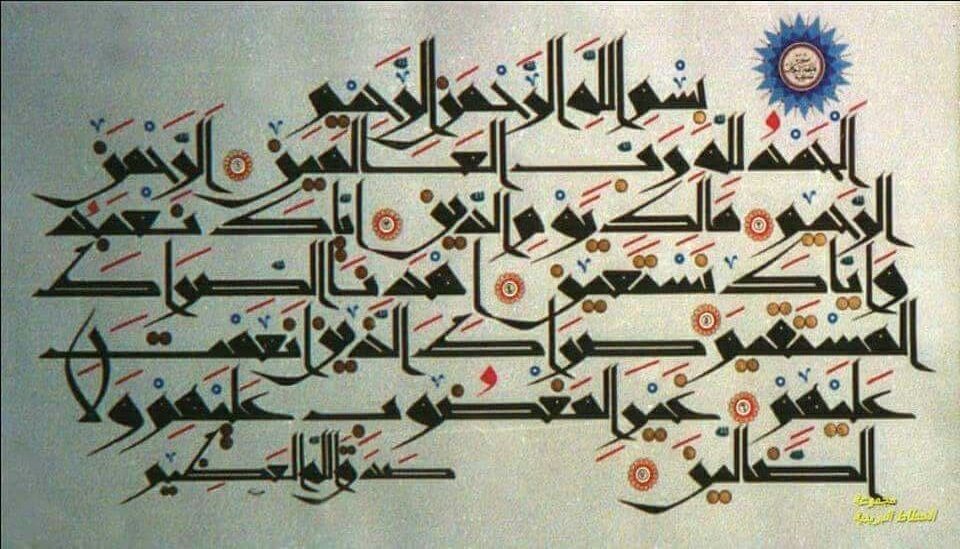 بسم الله الرحمن الرحيم
الحمد لله رب العالمين الرحمن
الرحيم مالك يوم الدين اياك نعبد
واياك نستعين اهدنا الصراط
المستقيم صراط الذين انعمت
عليهم غير المغضوب عليهم ولا
الضالين صدق الله العظيم
مجموعة
الخطاط البريدية